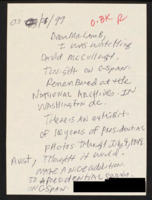 /97 O-BK R
Dear Mr Lamb,
I was watching
David McCullough
Tonight on C-Span
Remembered at the
National Archives in
Washington DC.
There's an exhibit
of 10 years of presidential
photos I thought
And, I thought it would
make a nice addition
to a presidential
on C-Span